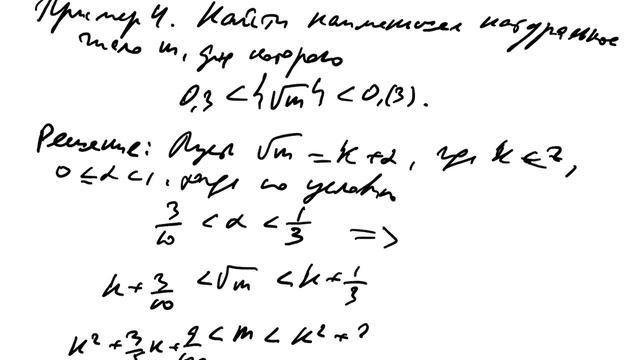 Пример 4. Найти наименьшее натуральное
число m, для которого
0,3 < {√m} < 0,(3).
Решение: Пусть √m = k + α, где k ∈ Z,
0 ≤ α < 1, тогда по условию
3/10 < α < 1/3 =>
k + 3/10 < √m < k + 1/3
k² + 3/5 k + < m < k² +